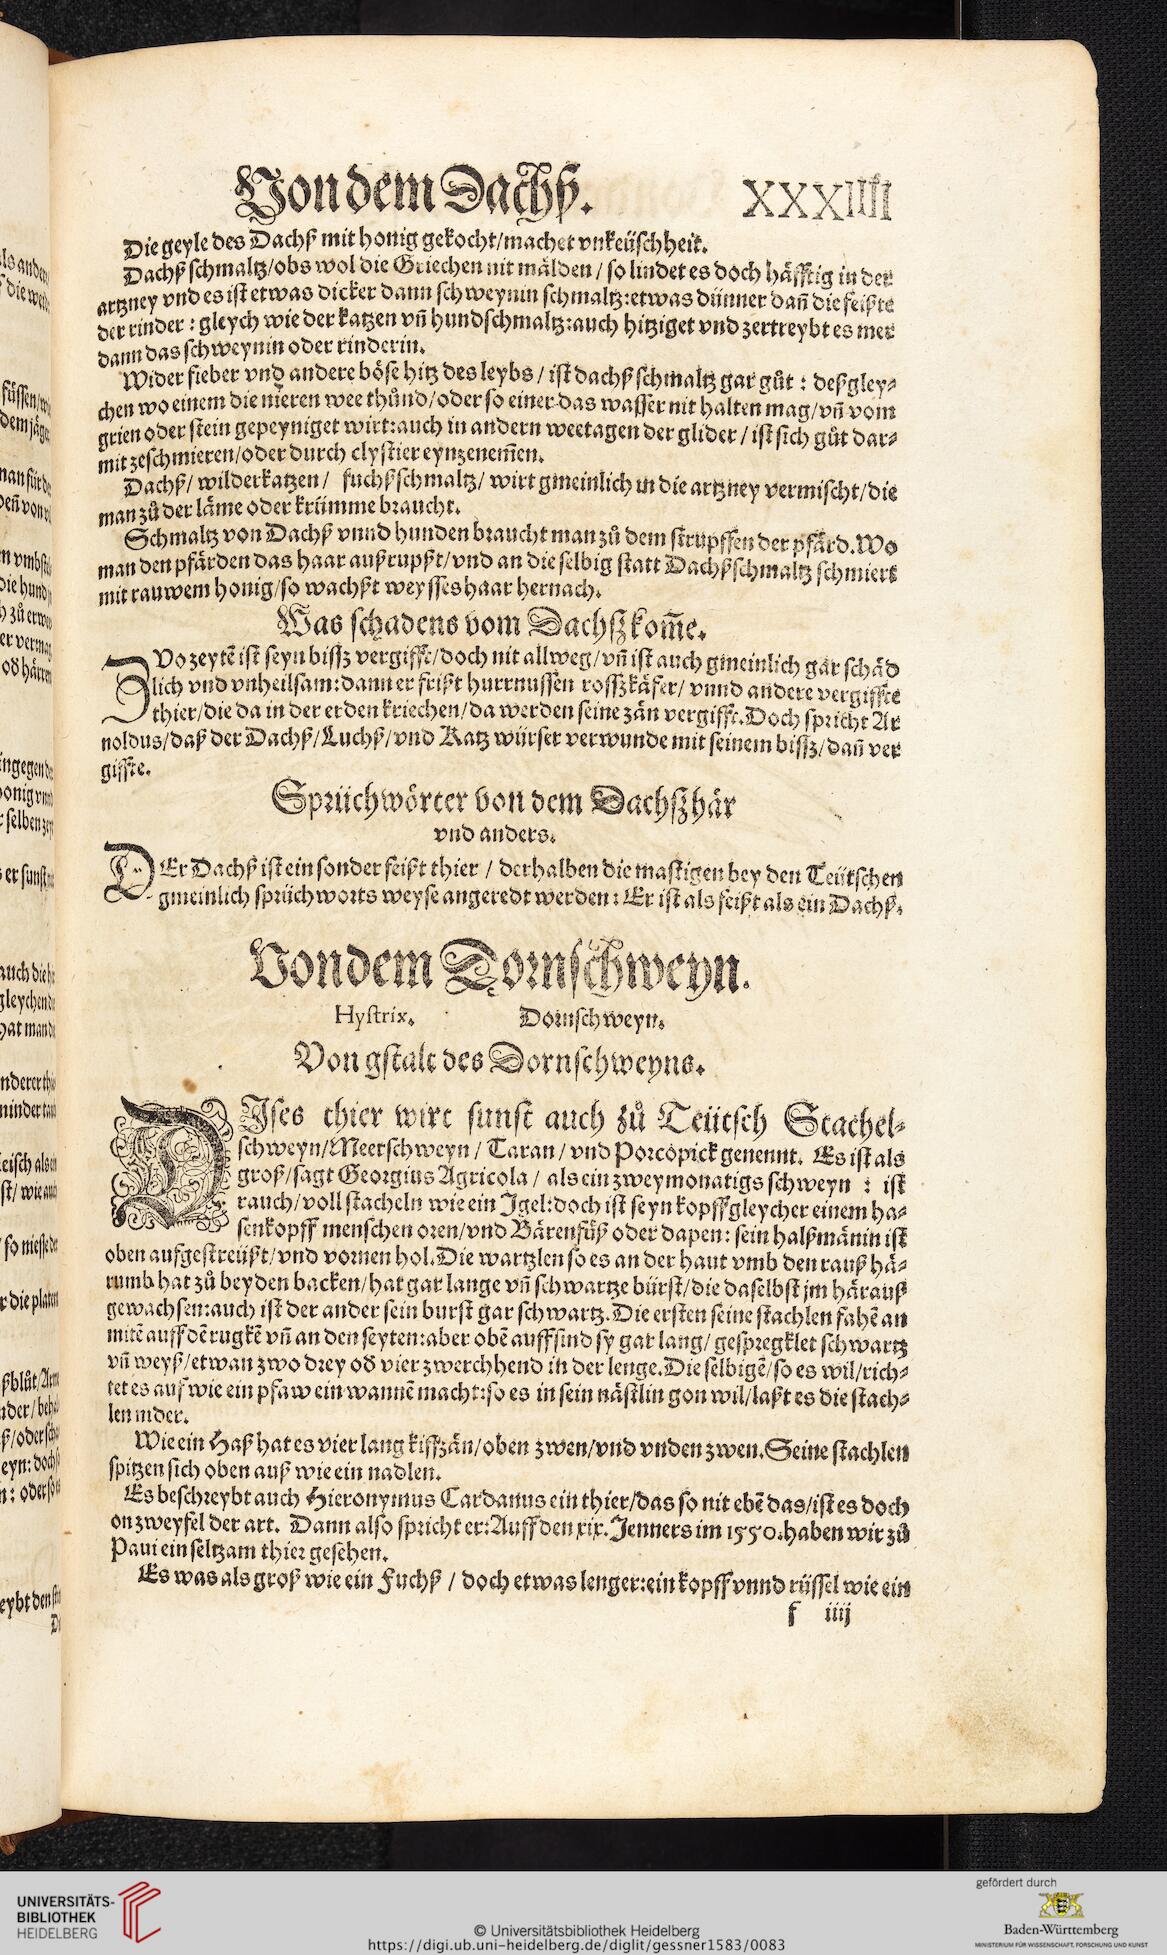 Von dem Dachß. XXXIIII
Die geyle des Dachß mit honig gekocht/machet vnkeüschheit.
Dachß schmaltz/obs wol die Griechen nit mälden / so lindet es doch häfftig in der
artzney vnd es ist etwas dicker dann schweynin schmaltz:etwas dünner dañ die feißte
der rinder : gleych wie der katzen vñ hundschmaltz:auch hitziget vnd zertreybt es mer
dann das schweynin oder rinderin.
Wider fieber vnd andere böse hitz des leybs / ist dachß schmaltz gar gůt : deßgley⸗
chen wo einem die nieren wee thůnd/oder so einer das wasser nit halten mag/vñ vom
grien oder stein gepeyniget wirt:auch in andern weetagen der glider / ist sich gůt dar⸗
mit zeschmieren/oder durch clystier eynzenem̃en.
Dachß/ wilderkatzen/ fuchßschmaltz/ wirt gmeinlich in die artzney vermischt/die
man zů der läme oder krümme braucht.
Schmaltz von Dachß vnnd hunden braucht man zů dem strupffen der pfärd.Wo
man den pfärden das haar außrupßt/vnd an die selbig statt Dachßschmaltz schmiert
mit rauwem honig/so wachßt weysses haar hernach.
Was schadens vom Dachsz kom̃e.
ZVo zeytẽ ist seyn bissz vergifft/doch nit allweg/vñ ist auch gmeinlich gar schäd
lich vnd vnheilsam:dann er frißt hurrnussen rosszkäfer/ vnnd andere vergiffte
thier/die da in der erden kriechen/da werden seine zän vergifft.Doch spricht Ar
noldus/daß der Dachß/Luchß/vnd Katz würser verwunde mit seinem bissz/dañ ver
giffte.
Sprüchwörter von dem Dachsz här
vnd anders.
DEr Dachß ist ein sonder feißt thier / derhalben die mastigen bey den Teütschen
gmeinlich sprüchworts weyse angeredt werden : Er ist als feißt als ein Dachß.
Von dem Dornschweyn.
Hystrix. Dornschweyn.
Von gstalt des Dornschweyns.
DIses thier wirt sunst auch zů Teütsch Stachel⸗
schweyn/Meerschweyn / Taran/ vnd Porcopick genennt. Es ist als
groß/sagt Georgius Agricola / als ein zweymonatigs schweyn : ist
rauch/voll stacheln wie ein Igel:doch ist seyn kopff gleycher einem ha⸗
senkopff menschen oren/vnd Bärenfüß oder dapen: sein halßmänin ist
oben aufgestreüßt/vnd vornen hol.Die wartzlen so es an der haut vmb den rauß hä⸗
rumb hat zů beyden backen/hat gar lange vñ schwartze bürst/die daselbst jm härauß
gewachsen:auch ist der ander sein burst gar schwartz.Die ersten seine stachlen fahẽ an
mitẽ auff dẽ rugkẽ vñ an den seyten:aber obẽ auff sind sy gar lang/ gespregklet schwartz
vñ weyß/etwan zwo drey od vier zwerchhend in der lenge.Die selbigẽ/so es wil/rich⸗
tet es auf wie ein pfaw ein wannẽ macht:so es in sein nästlin gon wil/laßt es die stach⸗
len nider.
Wie ein Haß hat es vier lang kiffzän/oben zwen/vnd vnden zwen.Seine stachlen
spitzen sich oben auß wie ein nadlen.
Es beschreybt auch Hieronymus Cardanus ein thier/das so nit ebẽ das/ist es doch
on zweyfel der art. Dann also spricht er:Auff den xix. Jenners im 1550.haben wir zů
Paui ein seltzam thier gesehen.
Es was als groß wie ein Fuchß / doch etwas lenger:ein kopff vnnd rüssel wie ein
f iiij
UNIVERSITÄTS-
BIBLIOTHEK
HEIDELBERG
© Universitätsbibliothek Heidelberg
https://digi.ub.uni-heidelberg.de/diglit/gessner1583/0083
gefördert durch
Baden-Württemberg
MINISTERIUM FÜR WISSENSCHAFT, FORSCHUNG UND KUNST